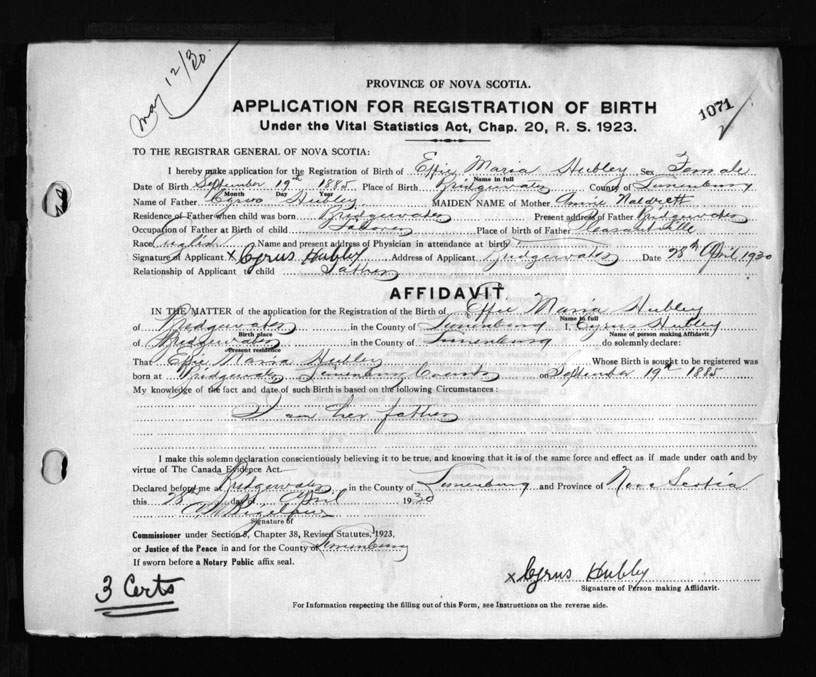 May 12/30.
PROVINCE OF NOVA SCOTIA.
1071
APPLICATION FOR REGISTRATION OF BIRTH
Under the Vital Statistics Act, Chap. 20, R. S. 1923.
TO THE REGISTRAR GENERAL OF NOVA SCOTIA:
I hereby make application for the Registration of Birth of Effie Maria Hubley Sex Female
Name in full
Date of Birth September 19th 1885 Place of Birth Bridgewater County of Lunenburg
Month Day Year
Name of Father Cyrus Hubley MAIDEN NAME of Mother Annie
Residence of Father when child was born Bridgewater Present address of Father Bridgewater
Occupation of Father at Birth of child Laborer Place of birth of Father Pleasantville
Race English Name and present address of Physician in attendance at birth
Signature of Applicant x Cyrus Hubly Address of Applicant Bridgewater Date 28th April 1930
Relationship of Applicant to child Father
AFFIDAVIT
IN THE MATTER of the application for the Registration of the Birth of Effie Maria Hubley
Name in full
of Bridgewater in the County of Lunenburg I, Cyrus Hubley
Birth place Name of person making Affidavit
of Bridgewater in the County of Lunenburg do solemnly declare:
Present residence
That Effie Maria Hubley Whose Birth is sought to be registered was
born at Bridgewater Lunenburg County on September 19th 1885
My knowledge of the fact and date of such Birth is based on the following Circumstances:
I am her father
I make this solemn declaration conscientiously believing it to be true, and knowing that it is of the same force and effect as if made under oath and by
virtue of The Canada Evidence Act.
Declared before me at Bridgewater in the County of Lunenburg and Province of Nova Scotia
this 28th day of April 1930
Signature of
Commissioner under Section 3, Chapter 38, Revised Statutes, 1923,
or Justice of the Peace in and for the County of Lunenburg
If sworn before a Notary Public affix seal.
3 Certs
x Cyrus Hubly
Signature of Person making Affidavit.
For Information respecting the filling out of this Form, see Instructions on the reverse side.